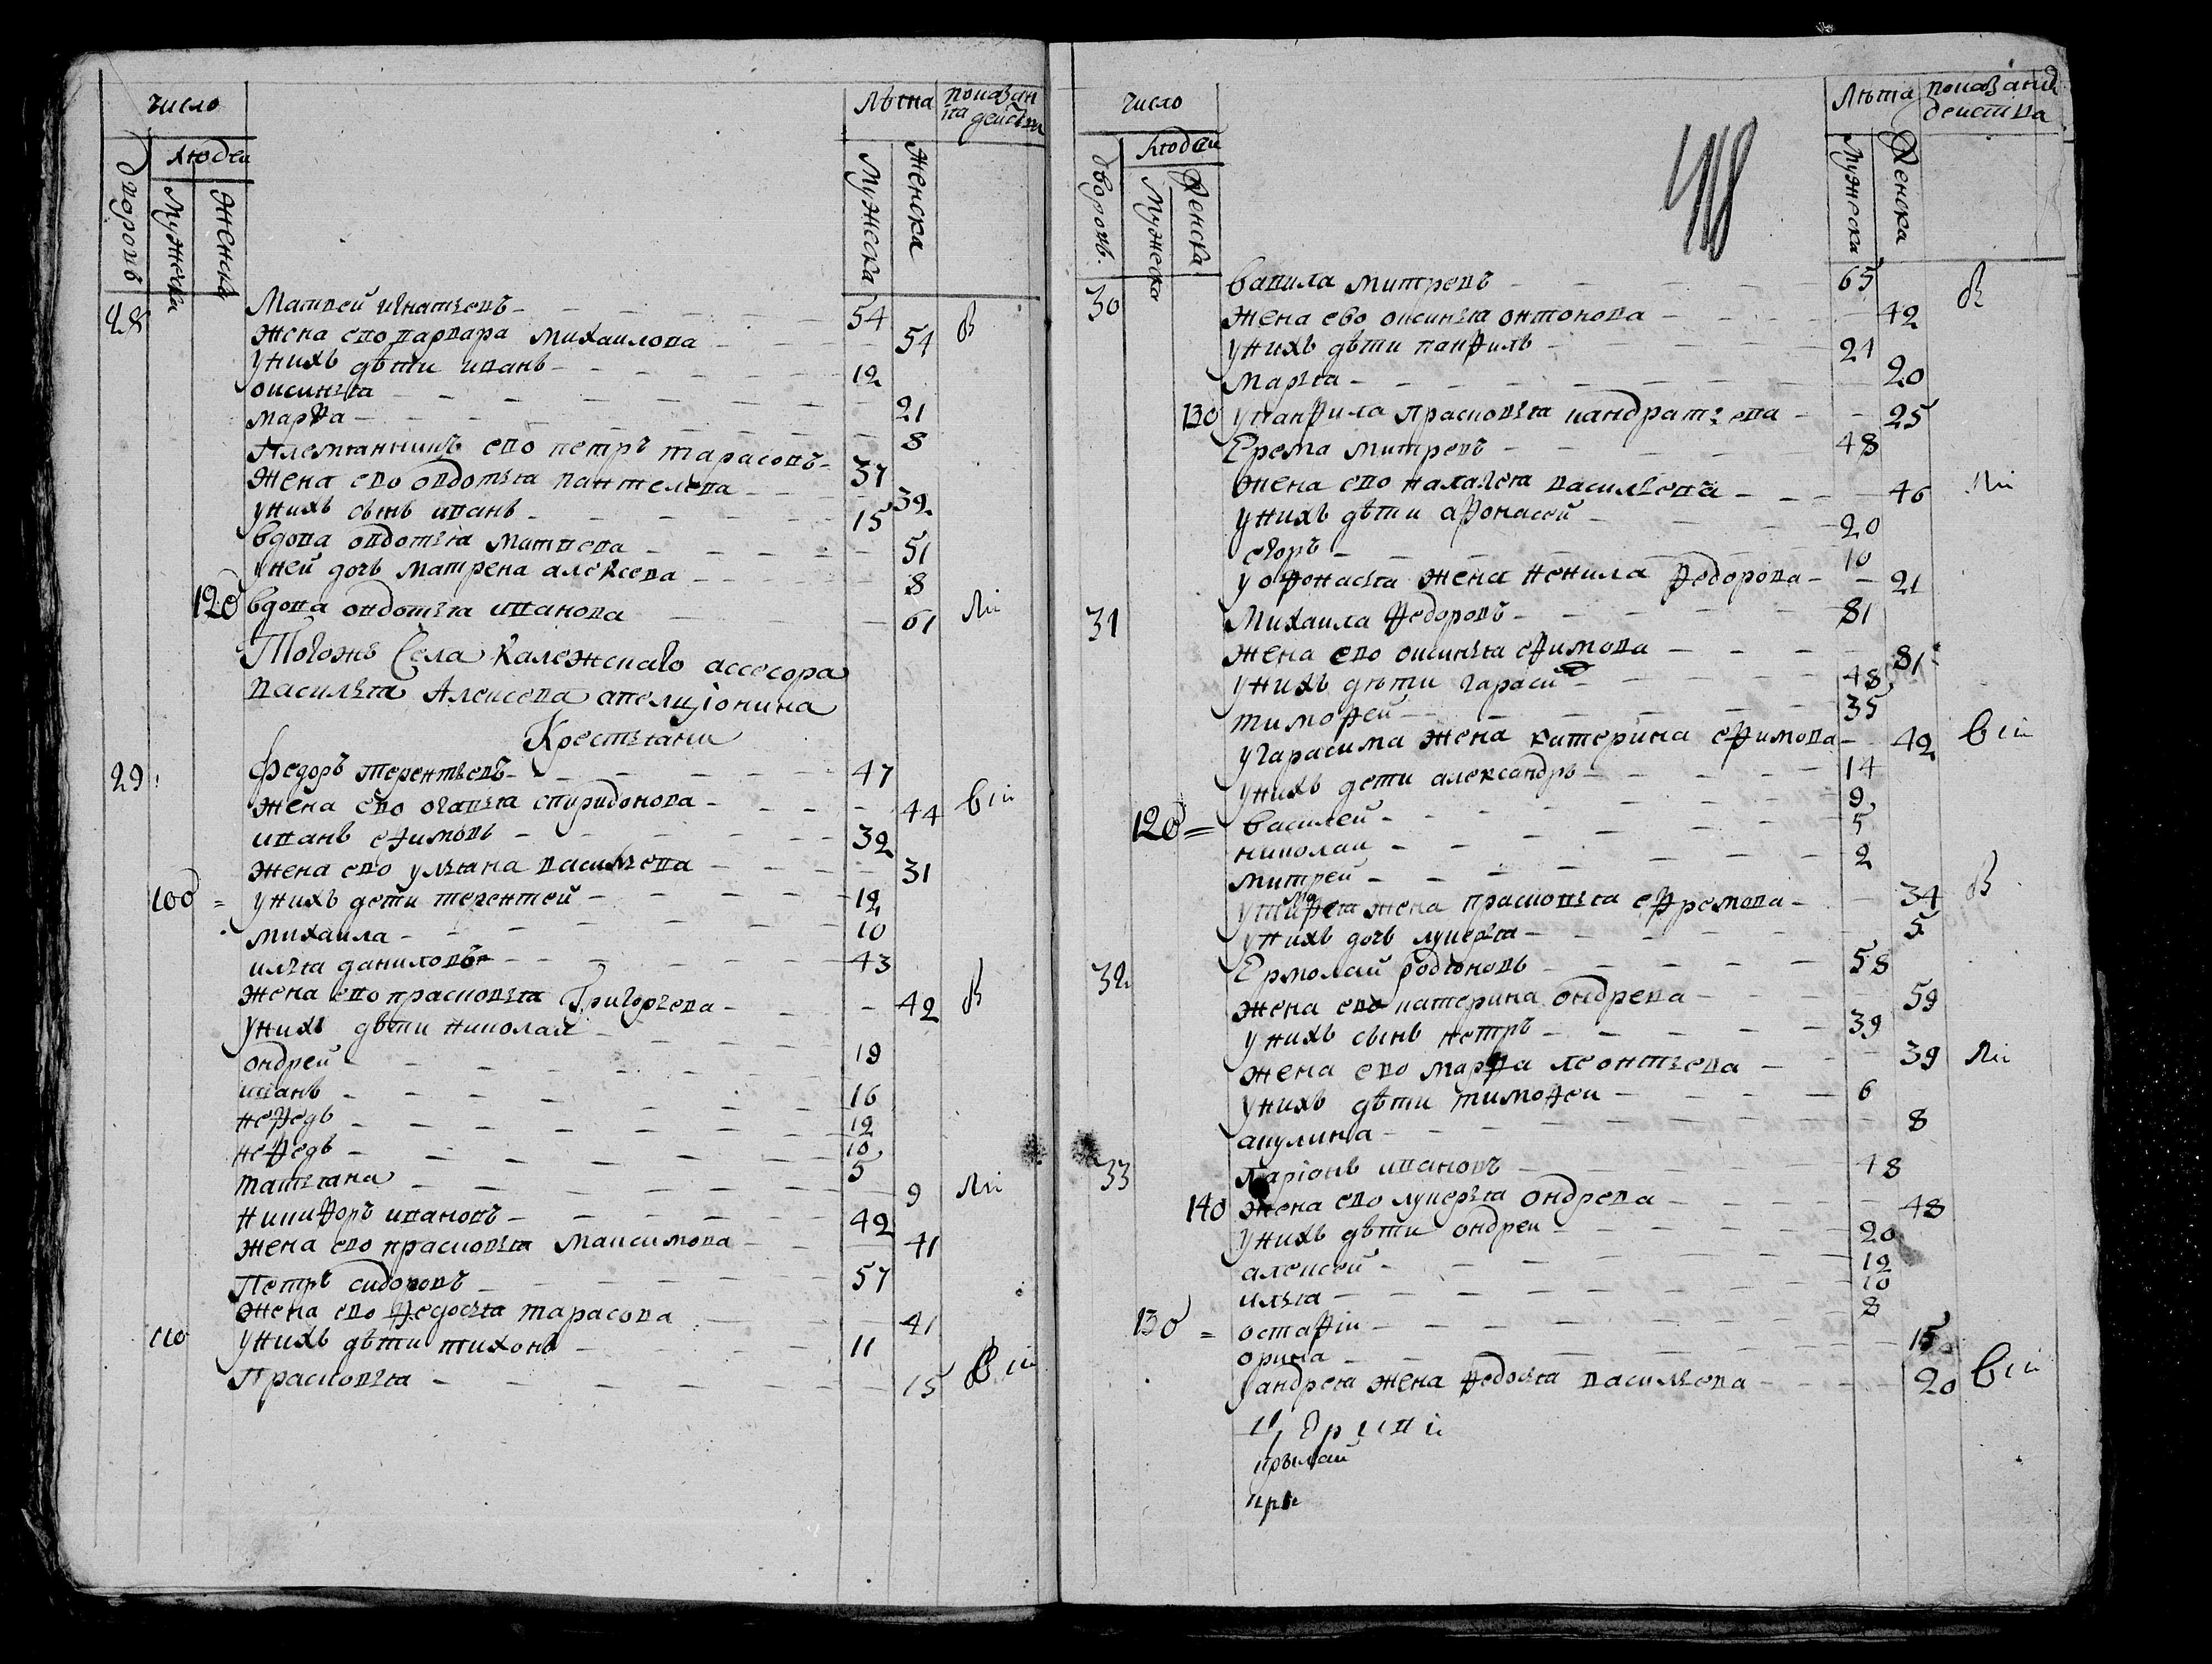 число
Лѣта
показан
на действа
людеи
дворовъ
Мужеска
Женска
Мужеска
Женска
28 Матвей игнатьевъ 54
Жена ево варвара михаилова 54
у нихъ дѣти иванъ 12
оксинья 21
марфа 8
Племянникъ ево петръ тарасовъ 37
Жена ево овдотья пантелева 39
у нихъ сынъ иванъ 15
Вдова овдотья матвева 51
у ней дочь матрена алексева 8
120 Вдова овдотья иванова 61
Тогожъ Села Калежскаго ассесора
василья Алексева апелціонина
Крестьяни
29 Федоръ терентьевъ 47
жена ево огапья спиридонова 44
иванъ ефимовъ 32
жена ево ульяна васильева 31
100 = у нихъ дети терентей 12
михаила 10
илья даниловъ 43
жена ево прасковья Григорьева 42
у нихъ дѣти николай
ондрей 19
иванъ 16
нефедъ 12
нефедъ 10
татьяна 5 9
никифоръ ивановъ 42
жена ево прасковья максимова 41
Петръ сидоровъ 57
жена ево федосья тарасова 41
110 у нихъ дѣти тихонъ 11
Прасковья 15
число
Лѣта
показание
действа
людей
дворовъ.
Мужеска
Женска
Мужеска
Женска
418
30 Вавила митревъ 65
Жена ево оксинья онтонова 42
у нихъ дѣти панфилъ 21
марья 20
130 у панфила прасковья кандратьева 25
Ерема митревъ 48
Жена ево палагея васильева 46
у нихъ дѣти афонасей 20
егоръ 10
у офонасья жена ненила федорова 21
31 Михаила федоровъ 81
жена ево оксинья ефимова 81
у нихъ дѣти гараси 48
тимофей 35
у гарасима жена катерина ефимова 42
у нихъ дети александръ 14
120 = василей 9
николаи 5
митрей 2
у тимофея жена прасковья ефремова 34
у нихъ дочь лукерья 5
32 Ермолаи родіоновъ 58
жена ево катерина ондрева 59
у нихъ сынъ петръ 39
жена ево марфа леонтьева 39
у нихъ дѣти тимофеи 6
акулина 8
33 Ларіонъ ивановъ 48
140 жена ево лукерья ондрева 48
у нихъ дѣти ондреи 20
алексей 12
илья 10
130 = остафіи 8
орина 15
у андрея жена федосья васильева 20